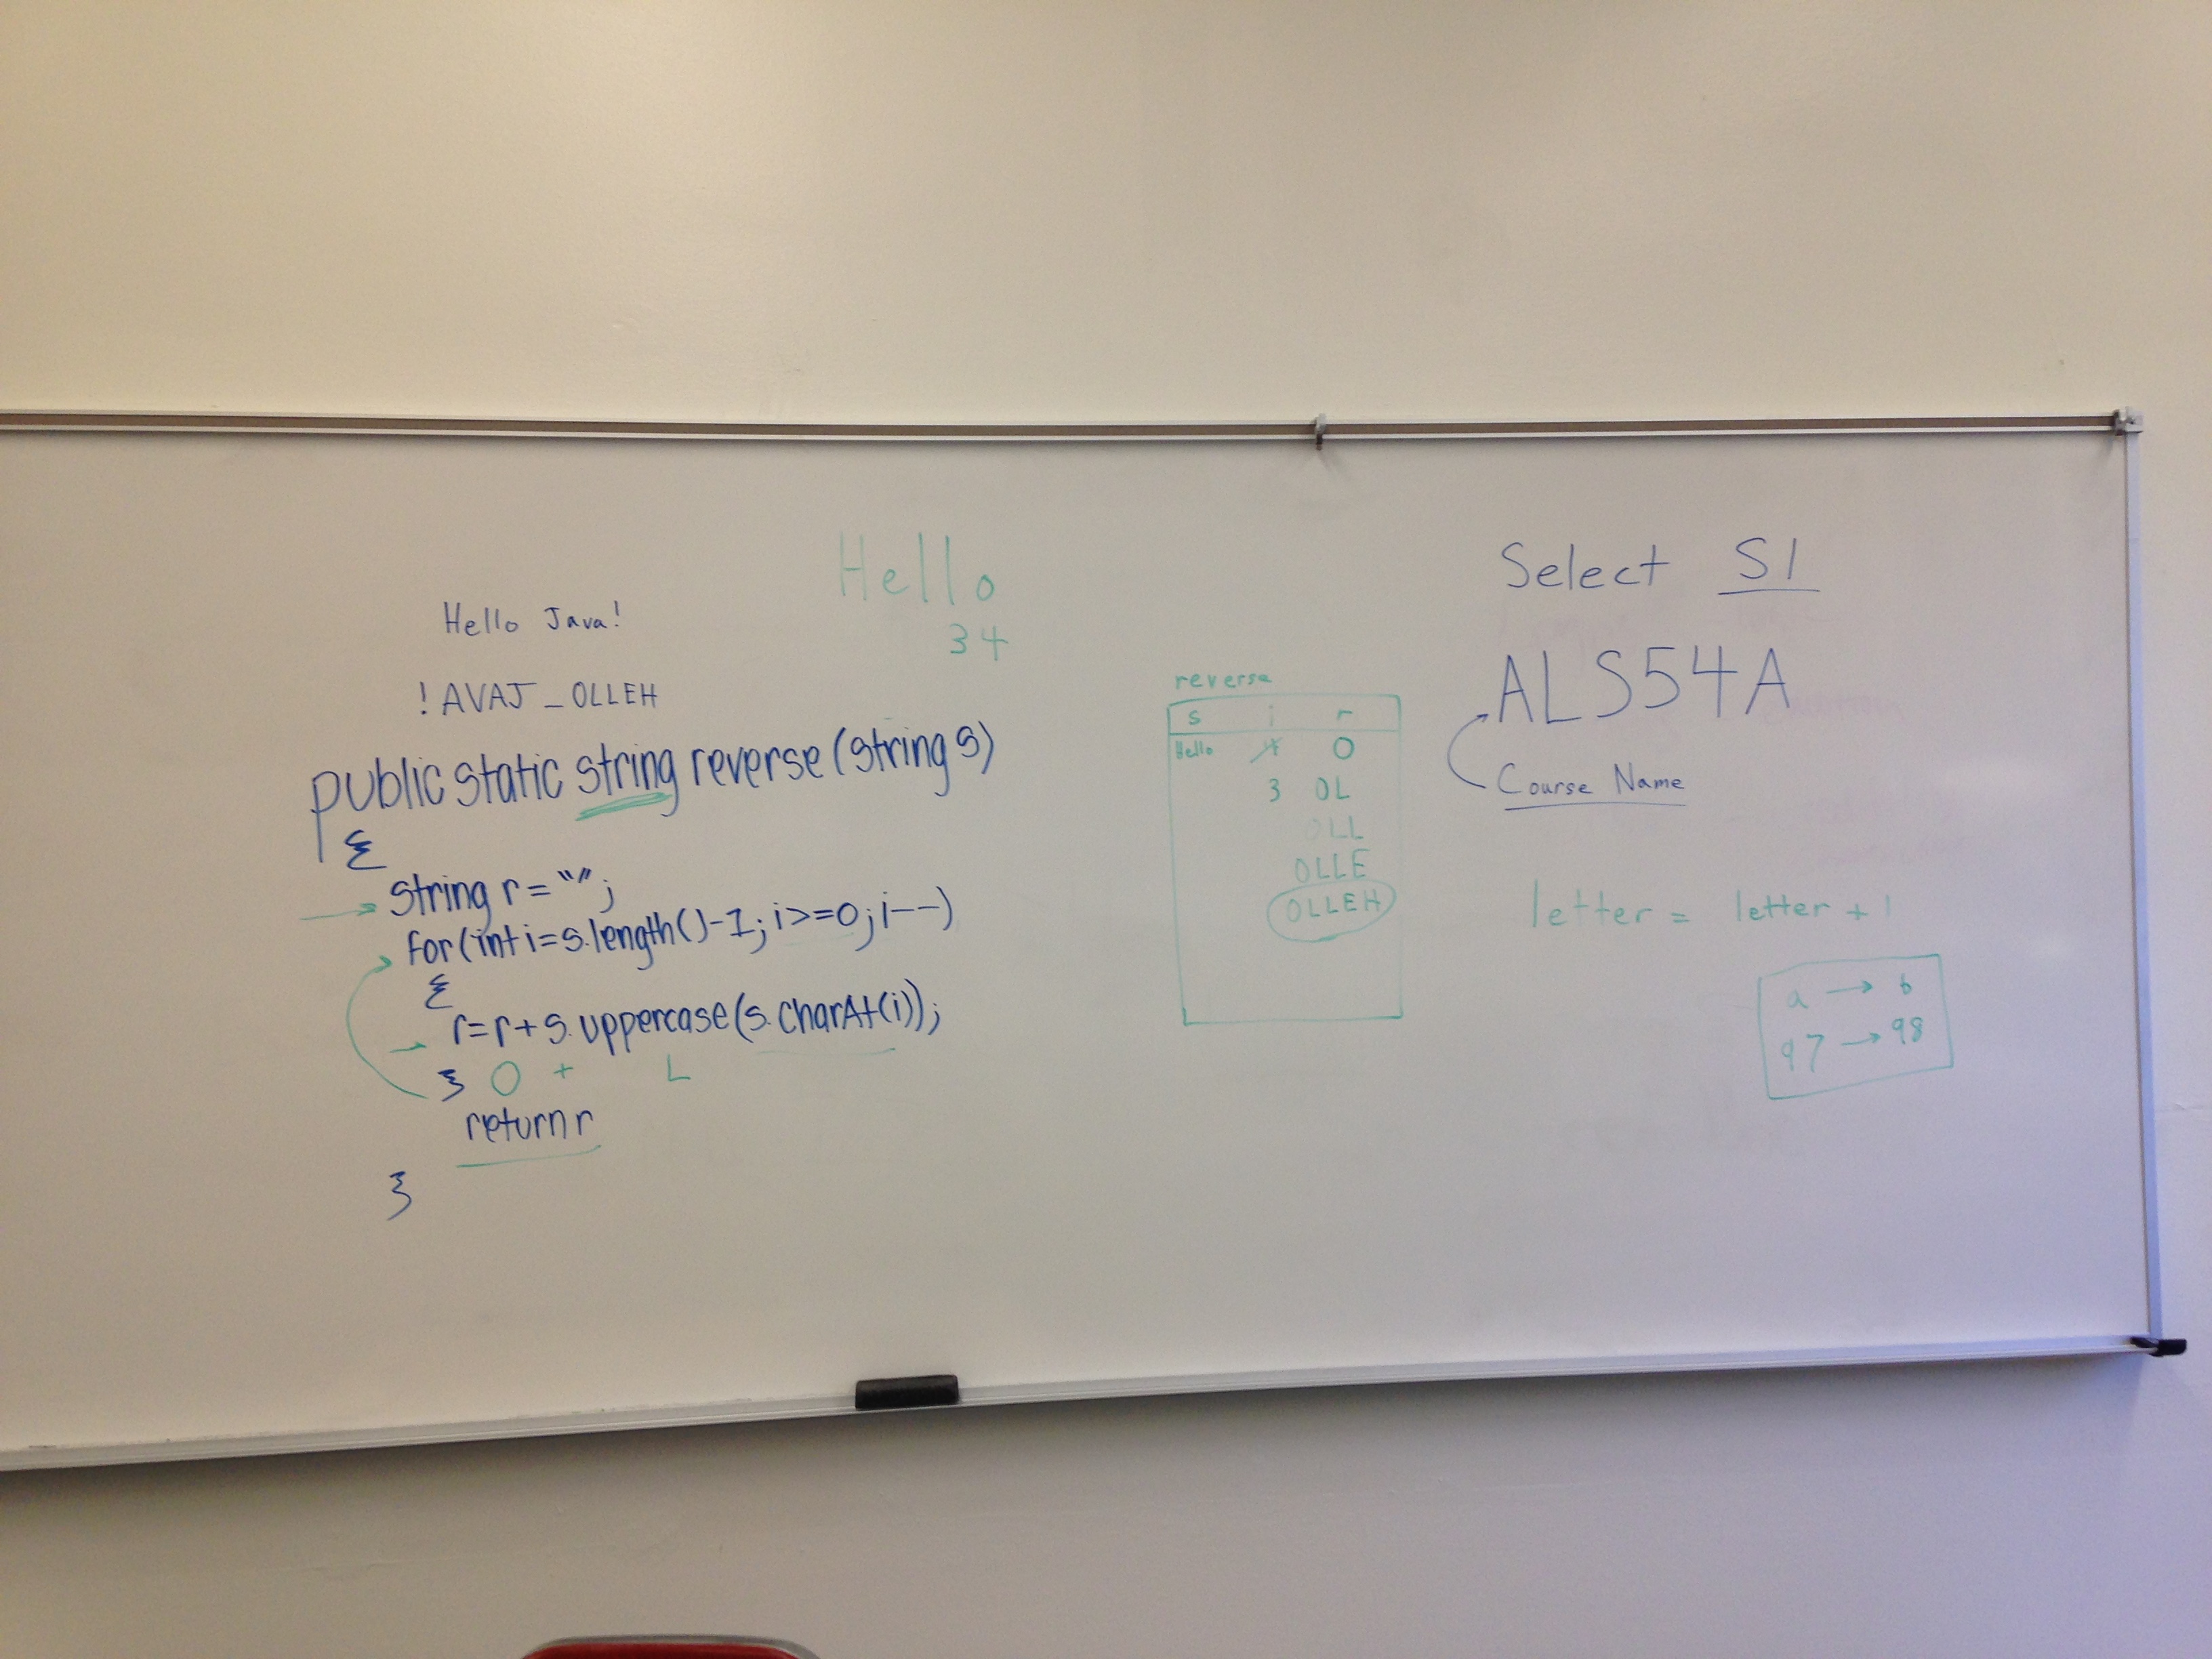 Hello
34
Hello Java!
!AVAJ_OLLEH
public static string reverse(string s)
{
string r = "";
for(int i=s.length()-1; i>=0; i--)
{
r=r+s.uppercase(s.charAt(i));
} O + L
return r
}
reverse
s i r
Hello 4 O
3 OL
OLL
OLLE
OLLEH
Select S1
ALS54A
Course Name
letter = letter + 1
a → b
97 → 98